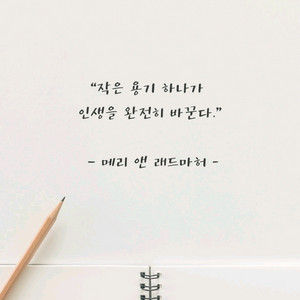 “작은 용기 하나가
인생을 완전히 바꾼다.”
- 메리 앤 래드마허 -